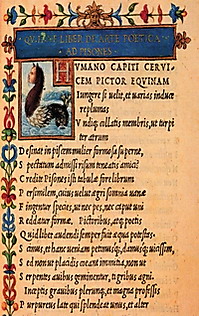 LIBER DE ARTE POETICA
AD PISONES
HVMANO CAPITI CERVI
CEM PICTOR EQVINAM
Iungere si uelit, et uarias induce
re plumas
Vndiq; collatis membris, ut turpi
ter atrum
Desinat in piscem mulier formosa superne,
Spectatum admissi risum teneatis amici?
Credite Pisones isti tabulæ fore librum
Persimilem, cuius uelut ægri somnia uanæ
Fingentur species, ut nec pes, nec caput uni
Reddatur formæ. Pictoribus, atq; poetis
Quidlibet audendi semper fuit æqua potestas.
Scimus, et hanc ueniam petimusq;, damusq; uicissim,
Sed non ut placidis coeant immitia, non ut
Serpentes auibus geminentur, tigribus agni.
Inceptis grauibus plerunq;, et magna professis
Purpureus late qui splendeat unus, et alter